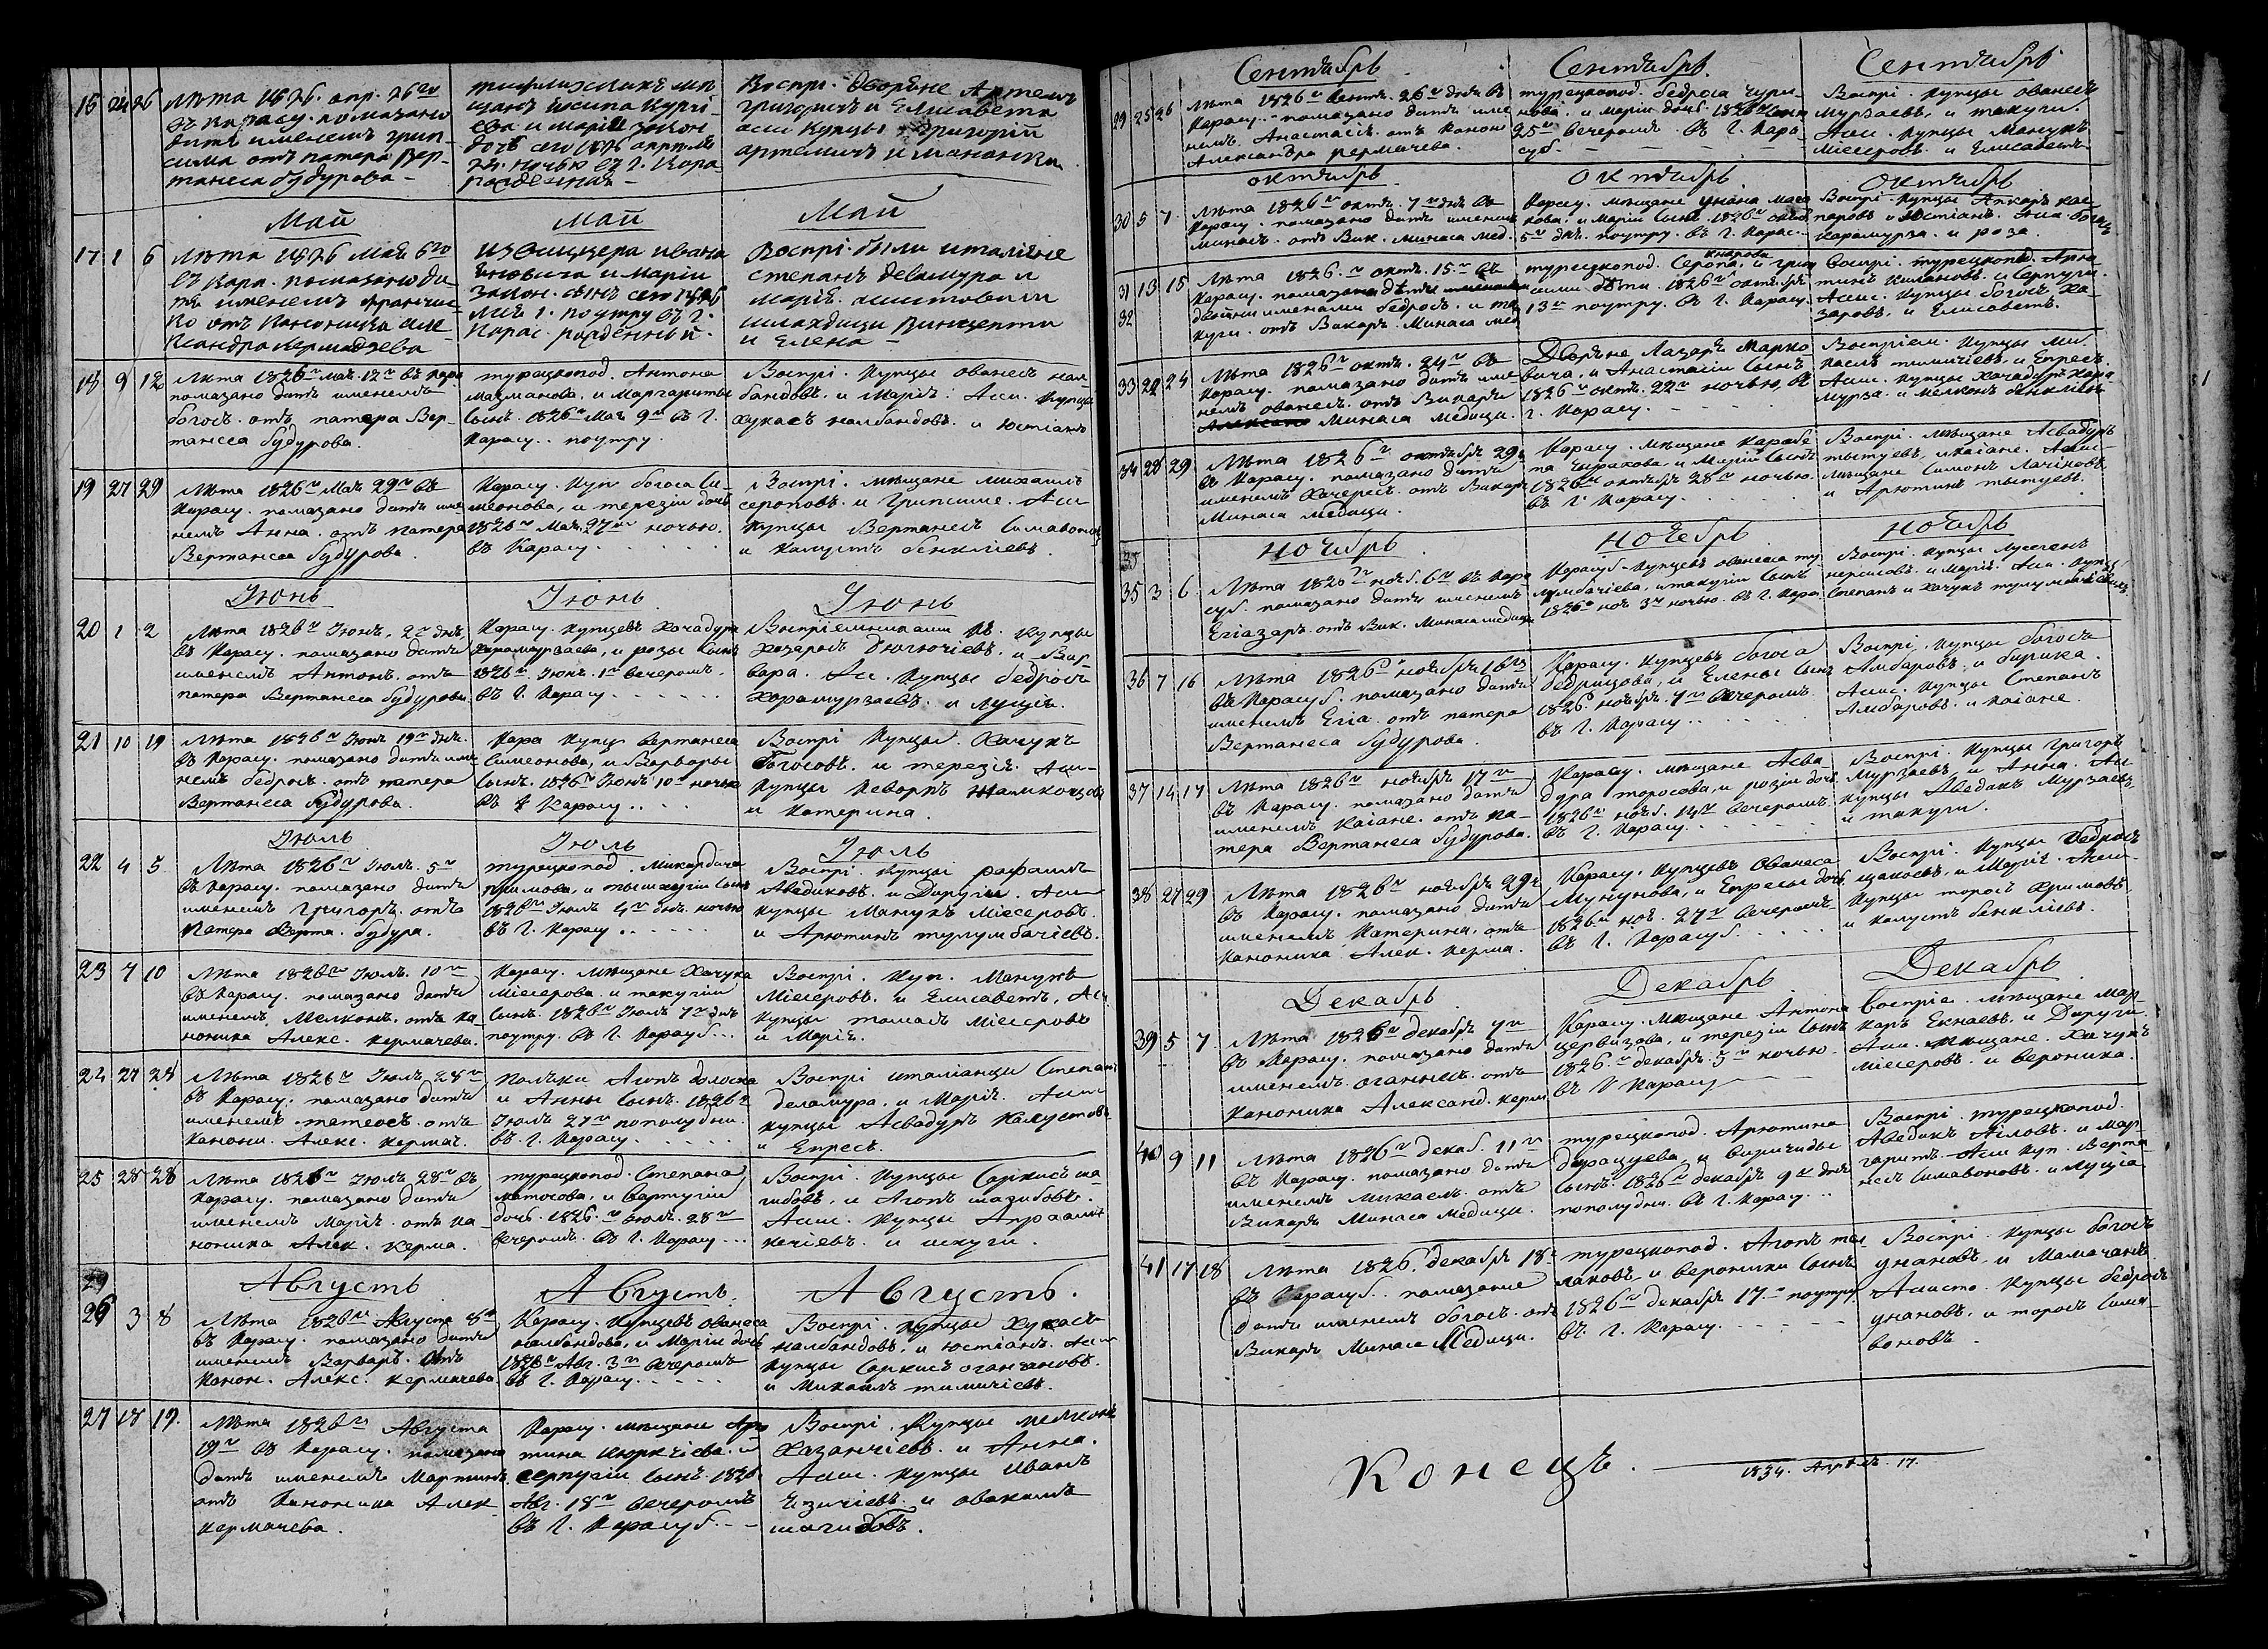 15 24 26 Лѣта 1826. апр. 26го
въ Карасу. помазано
дитя именемъ Грип-
сима отъ патера Вер-
танеса будурова -
щанъ Іосипа
и Маріи закон.
дочь сего 1826 апрѣля
24. ночью въ г. Кара
рожденная -
Воспрі. дворяне Артемъ
Григоричъ и Елисавета
асси купцы Григорій
артемичъ и
Май
Май
Май
17 1 6 Лѣта 1826 Мая 6го
въ Кара. помазано ди-
тя именемъ Франчис-
ко отъ Каноника Але-
ксандра Кермадзева
изъ офицера ивана
и Маріи
закон. сынъ сего 1826
Мая 1. поутру въ г.
Карас. рожденный.
Воспрі. были италіяне
степанъ деламура и
Марія. асистовали
Винценти
и Елена -
18 9 12 Лѣта 1826го Мая 12го въ Кара
помазано дитя именемъ
богосъ. отъ патера Вер-
танеса будурова.
турецкопод. Антона
и Маргариты
сынъ. 1826го Мая 9го въ г.
Карасу.. поутру.
Воспрі. Купцы ованесъ нал-
бандовъ, и Марія. Асси. Купцы
хукасъ налбандовъ. и Юстіанъ
19 27 29 Лѣта 1826го Мая 29го въ
Карасу. помазано дитя име-
немъ Анна. отъ патера
Вертанеса будурова.
Карасу. Куп. богоса Си-
меонова, и терезіи дочь
1826го Мая. 27го ночью.
въ Карасу. . . . .
Воспрі. мѣщане михаилъ
серопов. и Грипсиме. Асси
купцы Вертанесъ Симавоновъ
и Калустъ бенкліевъ.
Іюнь
Іюнь
Іюнь
20 1 2 Лѣта 1826го Іюня. 2го дня.
въ Карасу. помазано дитя
именемъ Антонъ. отъ
патера Вертанеса будурова.
Карасу. купцевъ Хачадура
Карамурзаева, и розы сынъ
1826го Іюня. 1го вечеромъ.
въ г. Карасу. . . . . .
и Вар-
вара. Ас. Купцы бедросъ
Харамурзаевъ. и Лусія.
21 10 19 Лѣта 1826го Іюня 19го дня.
въ Карасу. помазано дитя име-
немъ бедросъ. отъ патера
Вертанеса будурова.
Кара купц. вертанеса
Симеонова, и Варвары
сынъ. 1826го Іюня 10го ночью
въ г. Карасу. . . .
Воспрі Купцы. Хачукъ
Богосовъ. и терезія. Асс-
Купцы Кеворкъ
и Катерина.
Іюль
Іюль
Іюль
22 4 5 Лѣта 1826го Іюля. 5го
въ Карасу. помазано дитя
именемъ Григоръ. отъ
патера Верта. будура.
турецкопод. Микирдича
1826го Іюля 4го дня. ночью
въ г. Карасу. . . . . .
Воспрі. Купцы рафаилъ
Аведиковъ. и Дируги. Асси
Купцы Манукъ Міесеровъ.
и Арютинъ тулумбачіевъ.
23 7 10 Лѣта 1826го Іюля. 10го
въ Карасу. помазано дитя
именемъ Мелконъ. отъ Ка-
ноника Алекс. Кермачева.
Карасу. Мѣщане Хачука
Міесерова. и такугіи
сынъ. 1826го Іюля 7го дня
поутру. въ г. Карасуб...
Воспрі. Куп. Манукъ
Міесеровъ. и Елисаветъ, Асс
Купцы томасъ Міесеровъ
и Марія.
24 27 28 Лѣта 1826го Іюля. 28го
въ Карасу. помазано дитя
именемъ матеосъ. отъ
Канони. Алекс. Кермач.
и Анны сынъ. 1826го
Іюля 27го пополудни.
въ г. Карасу. . . . . .
Воспрі италіанцы Степанъ
деламура, и Марія. Асси
купцы Асвадуръ Калустовъ
и Епресъ.
25 28 28 Лѣта 1826го Іюля 28го въ
Карасу. помазано дитя
именемъ Марія. отъ Ка-
ноника Алек. Керма.
турецкопод. Степана
матосова, и вартугіи
дочь. 1826.го Іюля. 28го
вечеромъ. въ г. Карасу...
Воспрі. Купцы Саркисъ ша-
гибовъ, и Агопъ шагибовъ.
Асси. Купцы Апраамъ
кечіевъ. и искуги.
Августъ
Августъ.
Августъ.
26 3 8 Лѣта 1826го Августа 8го
въ Карасу. помазано дитя
именемъ Варваръ. отъ
Канон. Алекс. Кермачева.
Карасу. купцевъ ованеса
налбандова, и Маріи дочь
1826го Авг. 3го вечеромъ
въ г. Карасу. . . . .
Воспрі. Купцы Хукасъ
налбандовъ, и Юстіанъ. Асси
Купцы Саркисъ оганчановъ.
и Михаилъ тимичіевъ.
27 18 19. Лѣта 1826го Августа
19го въ Карасу. помазано
дитя именемъ Мартинъ.
отъ Каноника Алек
Кермачева.
Карасу. мѣщане Арю
тина Июркчіева. и
серпугіи сынъ. 1826.
Авг. 18го вечеромъ
въ г. Карасуб. - -
Воспрі. Купцы мелконъ
Хазанчіевъ. и Анна.
Асси. Купцы Иванъ
и овакимъ
шагибовъ.
Сентябрь
Сентябрь.
Сентябрь
29 25 26 Лѣта 1826го сентя. 26го дня въ
Карасу. помазано дитя име
немъ. Анастасія. отъ Канони
Александра Кермачева.
турецкопод. бедроса
и маріи дочь. 1826го сент
25го вечеромъ. въ г. Кара-
суб. - - - -
Воспрі. Купцы ованесъ
Мурзаевъ, и такуги.
Асси. Купцы Манукъ
Міесеровъ. и Елисаветъ.
октябрь
октябрь
октябрь
30 5 7. Лѣта 1826го октя. 7го дня въ
Карасу. помазано дитя именемъ
минасъ. отъ Вик. минаса мед.
Карасу. мѣщане
и Маріи сынъ. 1826го октя
5го дня. поутру. въ г. Карас..
Воспрі. Купцы
паровъ и Юстіанъ. Асси. богосъ
Карамурза. и роза.
31 13 15
32
Лѣта 1826.го октя. 15го въ
Карасу. помазано дѣти
двойни именами бедросъ. и та
куги. отъ Викар. Минаса мед
турецкопод. Серопа, и Грип
сими дѣти. 1826го октября
13го поутру. въ г. Карасу.
Воспрі. турецкопод. Арю
тинъ и серпуги.
Асси. Купцы богосъ Ха-
заровъ. и Елисаветъ.
33 22 24 Лѣта 1826го октя. 24го въ
Карасу. помазано дитя име-
немъ ованесъ. отъ Викарія
Минаса Медици.
Дворяне Лазаръ Марко
вича, и Анастасіи сынъ
1826го октя. 22го ночью, въ
г. Карасу.
Воспріем. Купцы Ми-
каелъ тимичіевъ, и Епресъ.
Асси. Купцы Хачадуръ Кара
мурза. и мелконъ бенкліевъ
34 28 29 Лѣта 1826го октября 29го
въ Карасу. помазано дитя
именемъ Хачересъ. отъ Викарія
Минаса Медици.
Карасу. мѣщане Карабе
та и Маріи сынъ
1826го октября 28го ночью.
въ г. Карасу.
Воспрі. мѣщане Асвадуръ
тытуевъ, и каіане. Асси
мѣщане Симонъ Лачиновъ,
и Арютинъ тытуевъ.
ноябрь
ноябрь
ноябрь
35 3 6. Лѣта 1826го нояб. 6го въ Кара
суб. помазано дитя именемъ
Егіазаръ. отъ Вик. Минаса медици
Карасуб. купцевъ ованеса ту
лумбачіева, и такугіи сынъ
1826го ноя. 3го ночью. въ г. Кара
Воспрі. Купцы Лусегенъ
нерсисовъ. и Марія. Асси. Купцы
Степанъ и Хачукъ
36 7 16 Лѣта 1826го ноября 16го
въ Карасуб. помазано дитя
именемъ Егіа. отъ патера
Вертанеса будурова.
Карасу. купцевъ богоса
и Елены сынъ
1826го ноября. 7го вечеромъ.
въ г. Карасу. . .
Воспрі. Купцы богосъ
Амбаровъ, и бурика.
Асси. Купцы Степанъ
Амбаровъ. и каіане.
37 14 17 Лѣта 1826го ноября 17го
въ Карасу. помазано дитя
именемъ Каіане. отъ па-
тера Вертанеса будурова.
Карасу. мѣщане Асва-
дура торосова, и розіи дочь
1826го нояб. 14го вечеромъ
въ г. Карасу. . . .
Воспрі. Купцы Григоръ
Мурзаевъ, и Анна. Ас
Купцы Аведикъ Мурзаевъ,
и такуги.
38 27 29 Лѣта 1826го ноября 29го
въ Карасу. помазано дитя
именемъ Катерина. отъ
Каноника Алек. Керма.
Карасу. Купцевъ Ованеса
Мунунова, и Епресы дочь
1826го ноя. 27го вечеромъ
въ г. Карасуб. . . . .
Воспрі. Купцы бедросъ
и Марія. Асси.
Купцы торосъ Хримовъ
и Калустъ бенкліевъ.
Декабрь
Декабрь
Декабрь
39 5 7. Лѣта 1826го декабря 7го
въ Карасу. помазано дитя
именемъ оганнесъ. отъ
Каноника Александ. Керм
Карасу. Мѣщане Антона
и терезіи сынъ
1826.го декабря. 5го ночью.
въ г Карасу
Воспріе. мѣщане Мар-
каръ Екнаевъ. и Дируги.
Асси. Мѣщане. Хачукъ
міесеровъ. и вероника.
40 9 11 Лѣта 1826го декаб. 11го
въ Карасу. помазано дитя
именемъ микаелъ. отъ
Викарія Минаса Медици.
турецкопод. Арютина
сынъ. 1826го декабря 9го дня
пополудни. въ г. Карасу...
Воспрі. турецкопод.
Аведикъ и Мар-
гаритъ. Асси Куп. Верта
несъ Симавоновъ. и Лусіа
41 17 18 Лѣта 1826. декабря 18го
въ Карасуб. помазано
дитя именемъ богосъ. отъ
Викарія Минаса Медици.
турецкопод. Агопъ
и вероники сынъ
1826го декабря 17.го поутру.
въ. г. Карасу. . . - - -
Воспрі. Купцы богосъ
унановъ. и Мамачанъ.
Асисто. Купцы бедросъ
унановъ. и торосъ сима-
воновъ.
Конецъ.
1834. Апрѣля. 17.